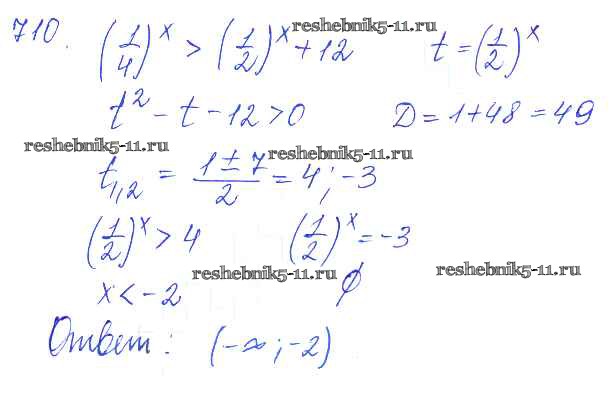 710. (1/4)^x > (1/2)^x + 12 t = (1/2)^x
reshebnik5-11.ru
t² - t - 12 > 0 D = 1 + 48 = 49
reshebnik5-11.ru reshebnik5-11.ru
t₁,₂ = (1 ± 7)/2 = 4; -3
(1/2)^x > 4 (1/2)^x = -3
reshebnik5-11.ru reshebnik5-11.ru
x < -2 ∅
Ответ: (-∞; -2)